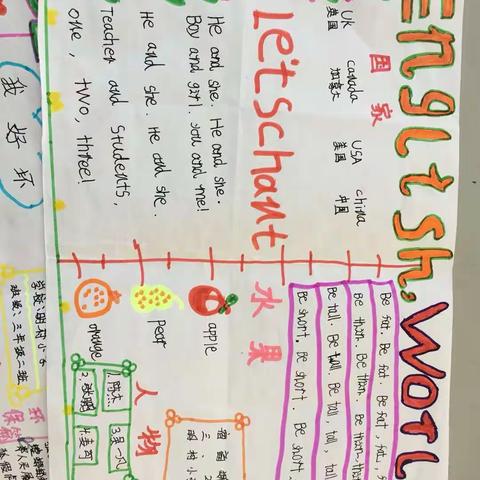 English, Worl
国家
UK canada USA china
英国 加拿大 美国 中国
Letschant
He and she. He and she.
Boy and girl. You and me!
He and she. He and she.
Teacher and Students,
one, two, three!
Be fat. Be fat. Be fat, fat,
Be then. Be then. Be then, then
Be tall. Be tall. Be tall, tall,
Be short. Be short. Be short.
水果
apple
pear
orange
人物
我好环
班级:三年级二班